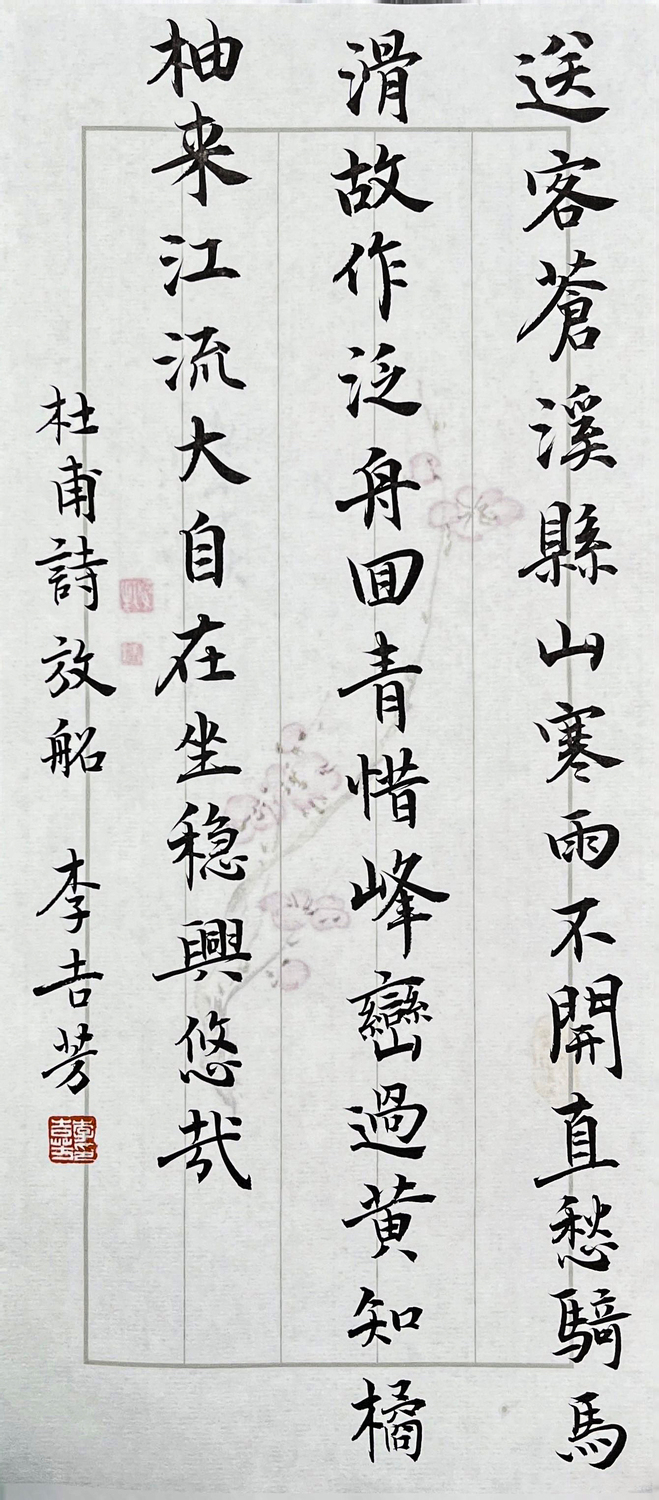 送客蒼溪縣山寒雨不開直愁騎馬
滑故作泛舟回青惜峰巒過黄知橘
柚来江流大自在坐穏興悠哉
杜甫詩放船 李吉芳